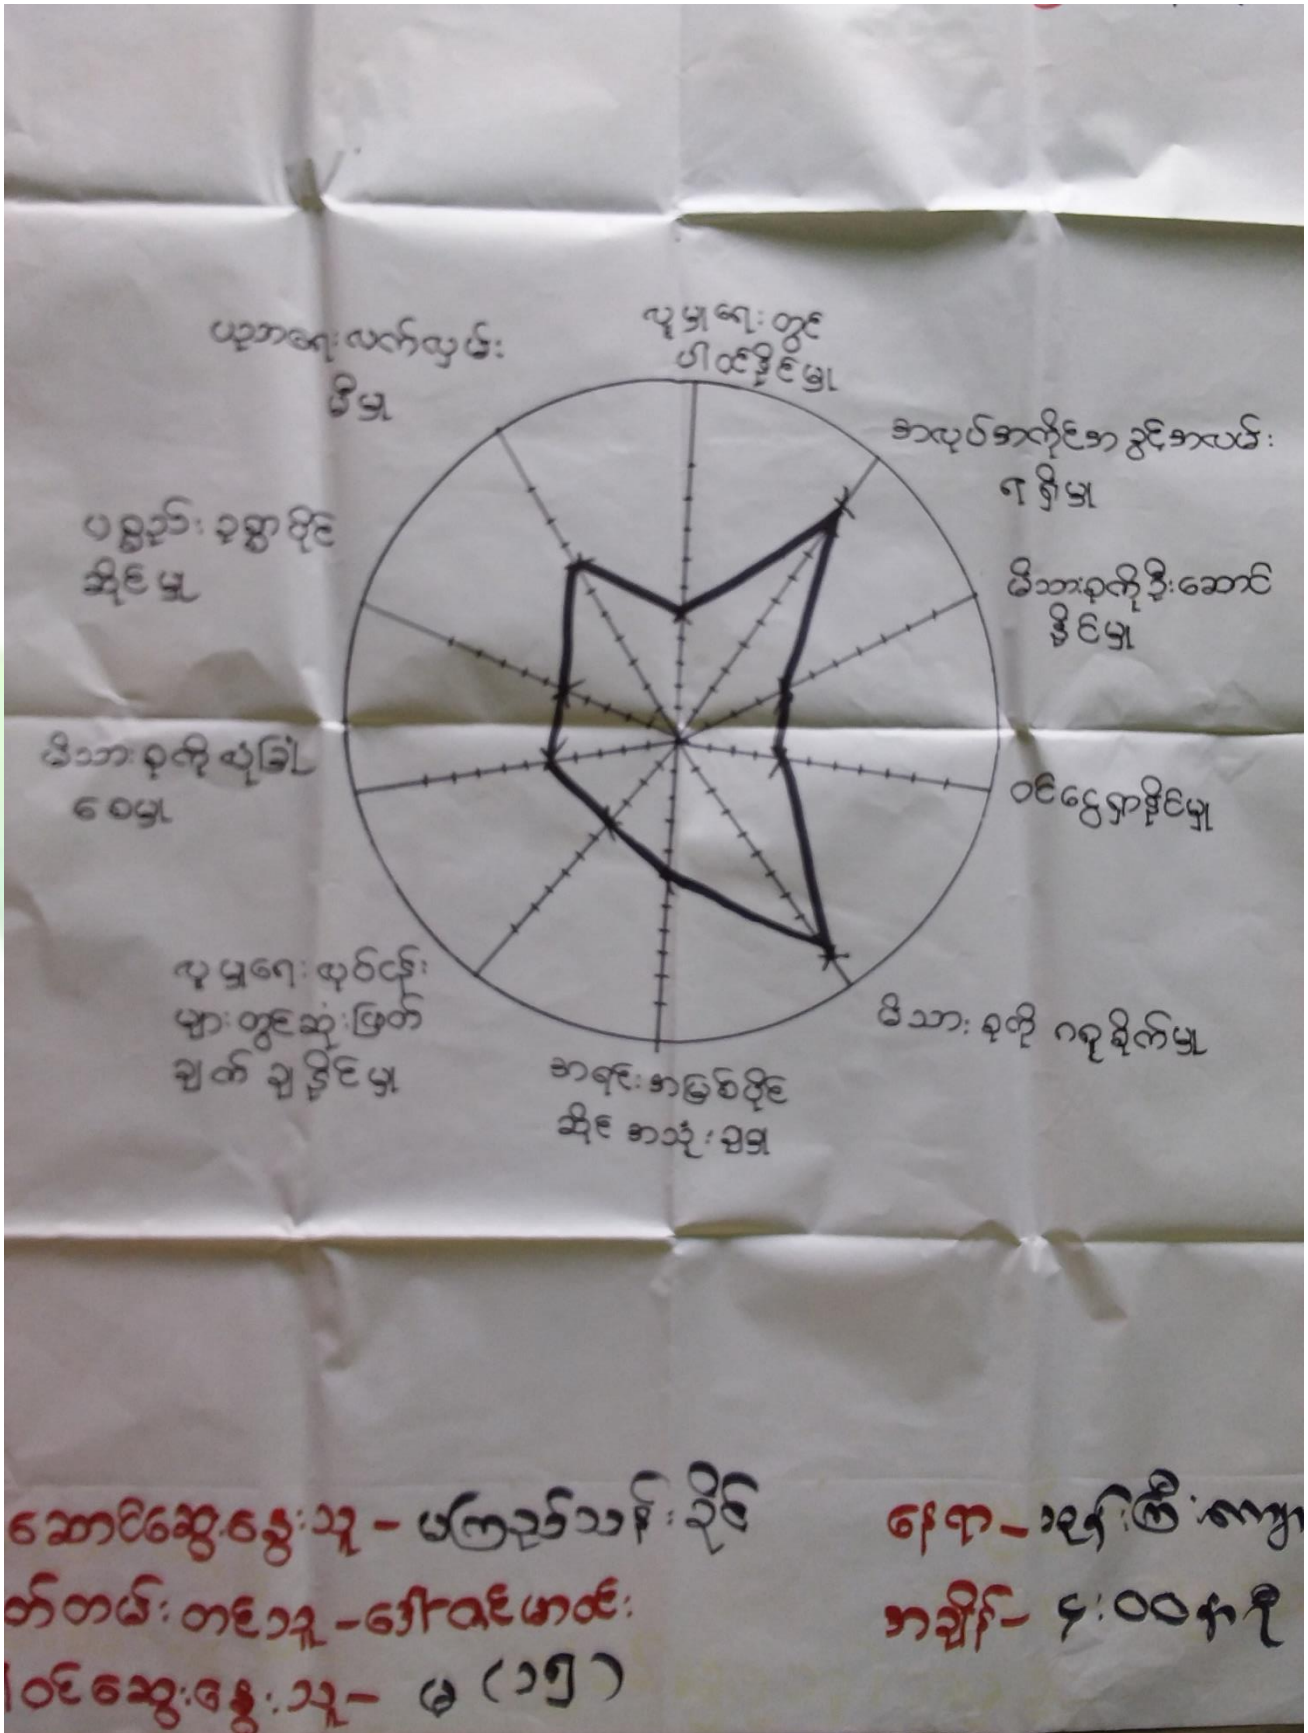 လူမှုရေးတွင်
ပါဝင်နိုင်မှု
အလုပ်အကိုင်အခွင့်အလမ်း
ရရှိမှု
မိသားစုကိုဦးဆောင်
နိုင်မှု
ဝင်ငွေရှာနိုင်မှု
မိသားစုကို ဂရုစိုက်မှု
အရင်းအမြစ်ပိုင်
ဆိုင် အသုံးချမှု
လူမှုရေးလုပ်ငန်း
များတွင်ဆုံးဖြတ်
ချက် ချနိုင်မှု
မိသားစုကို လုံခြုံ
စေမှု
ပစ္စည်းဥစ္စာပိုင်
ဆိုင်မှု
ပညာရေးလက်လှမ်း
မီမှု
ဆောင်ဆွေးနွေးသူ - မကြည်သန်းခိုင်
နေရာ -
တ်တမ်းတင်သူ - ဒေါ်
အချိန် - ၄:၀၀ နာရီ
ဝင်ဆွေးနွေးသူ - မ (၁၅)